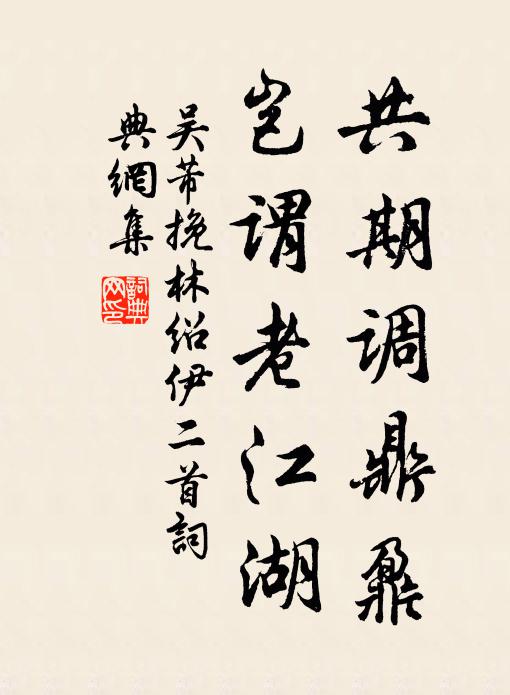 共期调鼎鼐
岂谓老江湖
吴芾挽林绍伊二首詞
典網集
詞典
网印